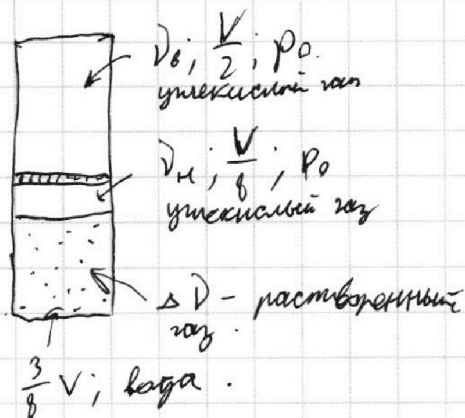 νв; V/2; p0.
углекислый газ
νн; V/8; p0
углекислый газ
Δν - растворенный
газ.
3/8 V; вода.